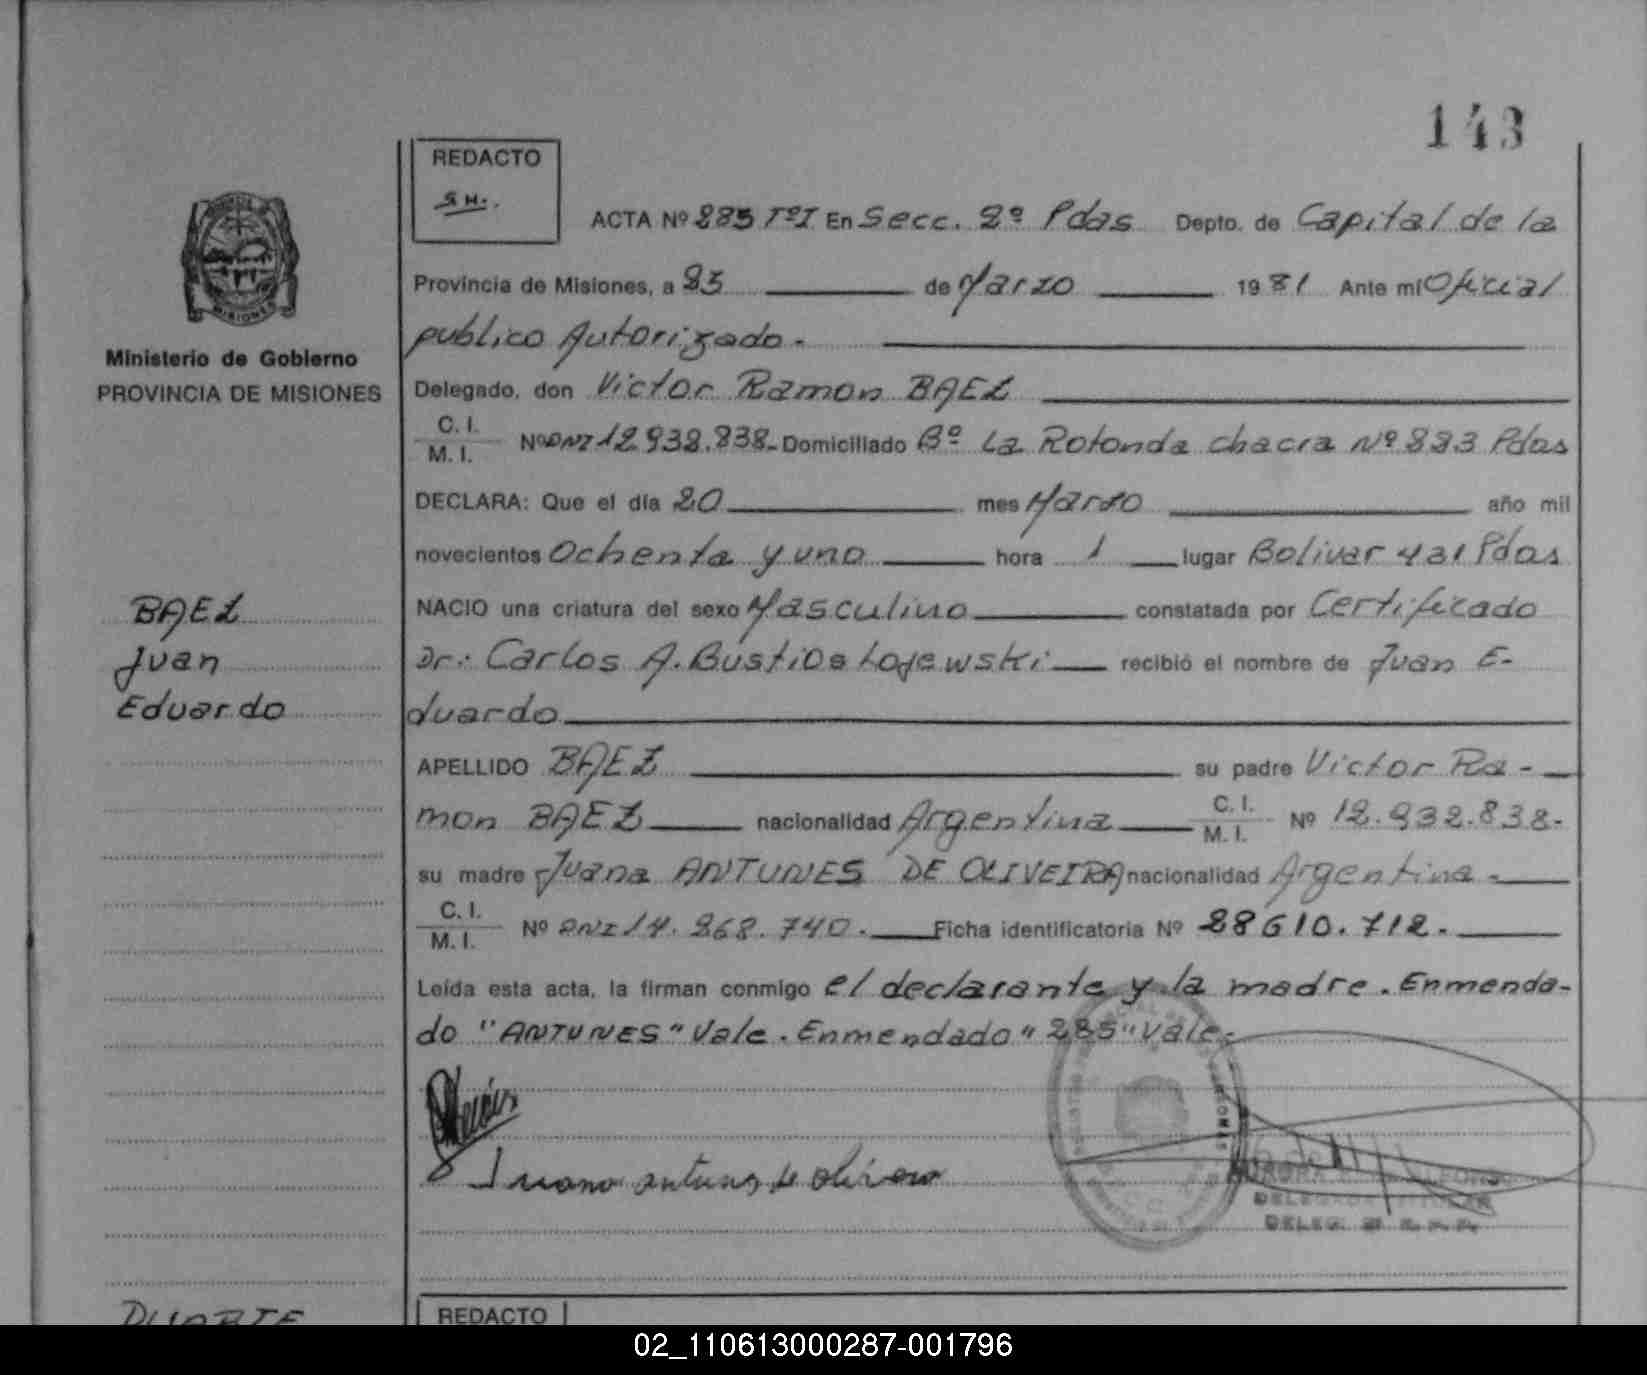 143
REDACTO
S H.
ACTA Nº 285 TºI En Secc. 2º Pdas Depto. de Capital de la
Provincia de Misiones, a 25 de Marzo 1981 Ante mi Oficial
publico Autorizado.
Ministerio de Gobierno
PROVINCIA DE MISIONES
Delegado, don Victor Ramon BAEZ
C. I.
M. I. Nº DNI 12.932.838.- Domiciliado Bº La Rotonda chacra Nº 233 Pdas
DECLARA: Que el día 20 mes Marzo año mil
novecientos Ochenta y uno hora 1 lugar Bolivar 431 Pdas
NACIO una criatura del sexo Masculino constatada por Certificado
Dr.: Carlos A. Bustios Lojewski recibió el nombre de Juan E-
duardo
BAEZ
Juan
Eduardo
APELLIDO BAEZ su padre Victor Ra-
mon BAEZ nacionalidad Argentina C. I. M. I. Nº 12.932.838.-
su madre Juana ANTUNES DE OLIVEIRA nacionalidad Argentina.
C. I.
M. I. Nº DNI 14.268.740. Ficha identificatoria Nº 28610.712.
Leída esta acta, la firman conmigo el declarante y la madre. Enmenda-
do "ANTUNES" Vale. Enmendado "285" Vale.
Juana antunes de olivera
DELEGADA TITULAR
DUARTE
REDACTO
02_110613000287-001796